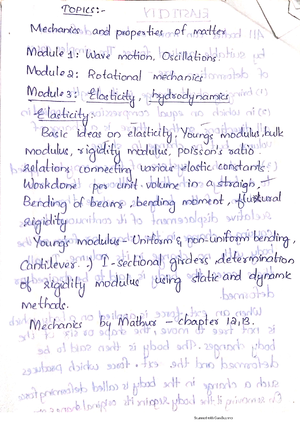 TOPICS:-
Mechanics and properties of matter
Module 1: Wave motion, Oscillations.
Module 2: Rotational mechanics
Module 3: Elasticity, hydrodynamics
Elasticity
Basic ideas on elasticity. Youngs modulus, bulk
modulus, rigidity modulus, poisson's ratio
relations connecting various elastic constants
Workdone per unit volume in a straigh
Bending of beams, bending moment, flustural
rigidity
Youngs modulus - Uniform & non-uniform bending,
Cantilever. I-sectional girders, determination
of rigidity modulus using static and dynamic
methods.
Mechanics by Mathur - chapter 12,13.